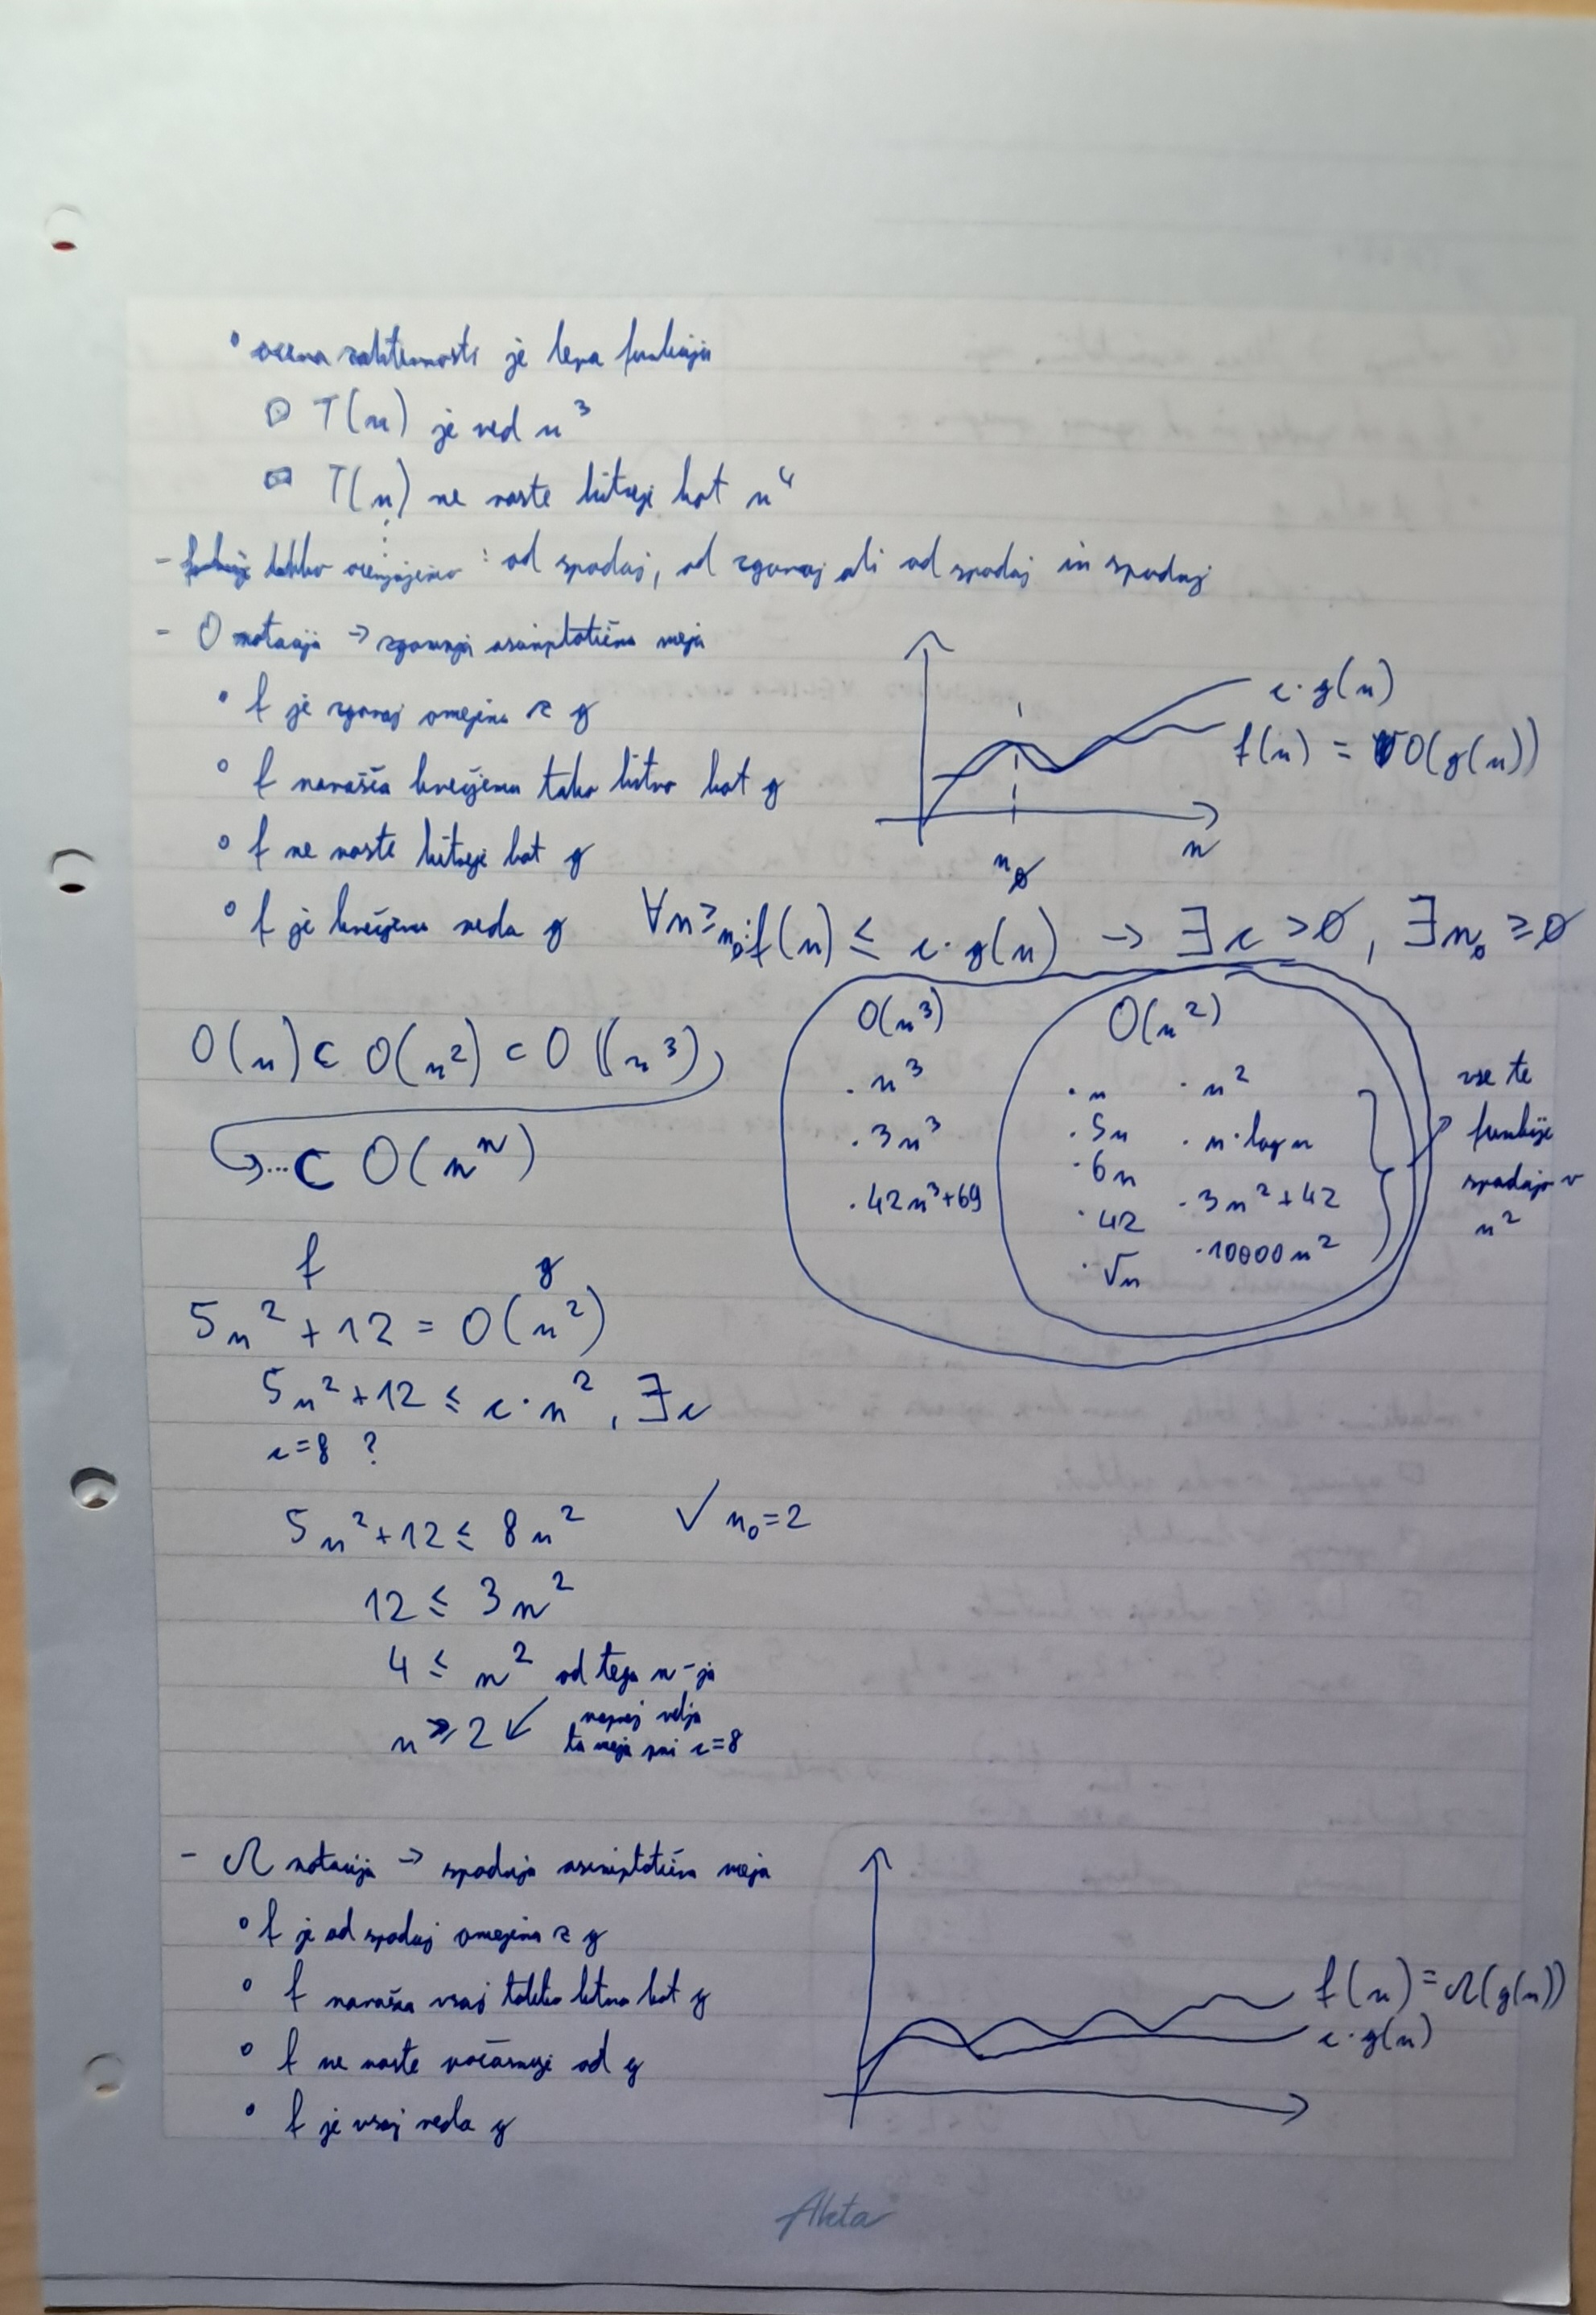 • ocena zahtevnosti je lepa funkcija
▫ T(n) je red n³
▫ T(n) ne raste hitreje kot n⁴
- funkcije lahko ocenjujemo : od spodaj, od zgoraj ali od spodaj in spodaj
- O notacija → zgornja asimptotična meja
• f je zgoraj omejena z g
° f narašča kvečjemu tako hitro kot g
° f ne raste hitreje kot g
° f je kvečjemu reda g ∀n≥n₀: f(n) ≤ c·g(n) → ∃c>0, ∃n₀≥0
c·g(n)
f(n) = O(g(n))
n₀
n
O(n) ⊂ O(n²) ⊂ O((n³)
↳...⊂ O(nⁿ)
O(n³)
· n³
· 3n³
· 42n³+69
O(n²)
· n · n²
· 5n · n·log n
· 6n
· 42 · 3n²+42
· √n · 10000n²
vse te
funkcije
spadajo v
n²
f g
5n²+12 = O(n²)
5n²+12 ≤ c·n², ∃c
c=8 ?
5n²+12 ≤ 8n² ✓ n₀=2
12 ≤ 3n²
4 ≤ n² od tega n-ja
n ≥ 2 ↙ naprej velja
ta meja pri c=8
- Ω notacija → spodnja asimptotična meja
° f je od spodaj omejena z g
° f narašča vsaj tako hitro kot g
° f ne raste počasneje od g
° f je vsaj reda g
f(n) = Ω(g(n))
c·g(n)
Akta